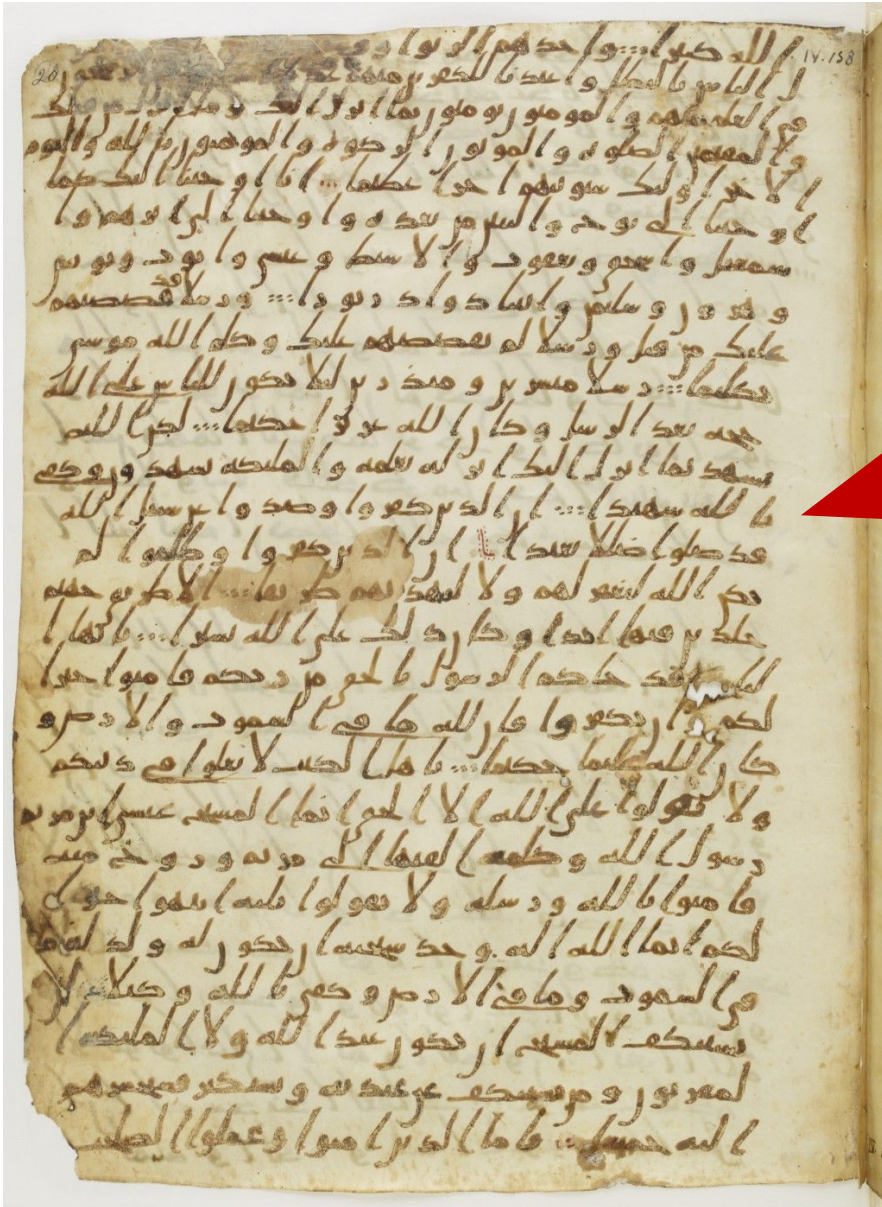 20
IV.158
الله كثيرا واخذهم الربوا و
ل الناس بالبطل واعتدنا للكفرين منهم
في العلم منهم والمومنون يومنون بما انزل اليك وما انزل من قبلك
والمقيمين الصلوه والموتون الزكوه والمومنون بالله واليوم
الاخر اولئك سنوتيهم اجرا عظيما انا اوحينا اليك كما
اوحينا الى نوح والنبين من بعده واوحينا الى ابرهيم وا
سمعيل واسحق ويعقوب والاسبط وعيسى وايوب ويونس
وهرون وسليمن واتينا داود زبورا ورسلا قد قصصنهم
عليك من قبل ورسلا لم نقصصهم عليك وكلم الله موسى
تكليما رسلا مبشرين ومنذرين ليلا يكون للناس على الله
حجه بعد الرسل وكان الله عزيزا حكيما لكن الله
يشهد بما انزل اليك انزله بعلمه والمليكه يشهدون وكفى
بالله شهيدا ان الذين كفروا وصدوا عن سبيل الله
قد ضلوا ضللا بعيدا ان الذين كفروا وظلموا لم
يكن الله ليغفر لهم ولا ليهديهم طريقا الا طريق جهنم
خلدين فيها ابدا وكان ذلك على الله يسيرا يايها ا
لناس قد جاكم الرسول بالحق من ربكم فامنوا خيرا
لكم وان تكفروا فان لله ما في السموت والارض و
كان الله عليما حكيما ياهل الكتب لا تغلوا في دينكم
ولا تقولوا على الله الا الحق انما المسيح عيسى ابن مريم
رسول الله وكلمته القيها الى مريم وروح منه
فامنوا بالله ورسله ولا تقولوا ثلثه انتهوا خيرا
لكم انما الله اله وحد سبحنه ان يكون له ولد له ما
في السموت وما في الارض وكفى بالله وكيلا لن
يستنكف المسيح ان يكون عبدا لله ولا المليكه ا
لمقربون ومن يستنكف عن عبدته ويستكبر فسيحشرهم
اليه جميعا فاما الذين امنوا وعملوا الصلحت